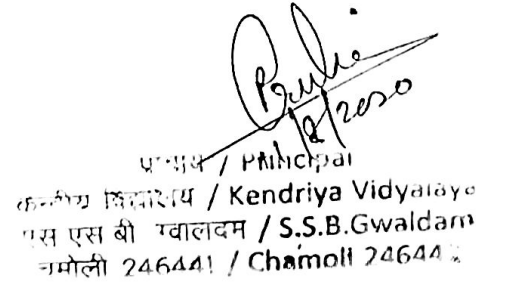 1/8/2020
प्राचार्य / Principal
केन्द्रीय विद्यालय / Kendriya Vidyalaya
एस एस बी ग्वालदम / S.S.B.Gwaldam
चमोली 246441 / Chamoli 24644